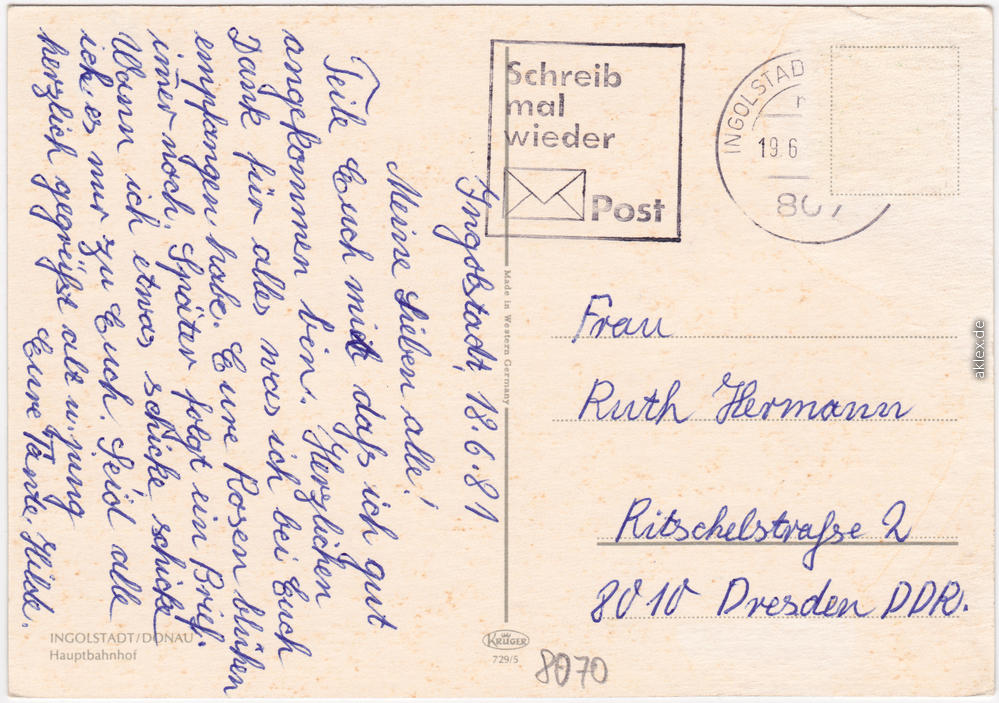 Ingolstadt, 18.6.81
Meine Lieben alle!
Teile Euch mit daß ich gut
angekommen bin. Herzlichen
Dank für alles was ich bei Euch
empfangen habe. Eure Rosen blühen
im̄er noch. Später folgt ein Brief.
Wann ich etwas schicke schicke
ich es nur zu Euch. Seid alle
herzlich gegrüßt alt u. jung
Eure Tante Hilde.
INGOLSTADT/DONAU
Hauptbahnhof
Made in Western Germany
KRÜGER
729/5
8070
Schreib
mal
wieder
Post
INGOLSTAD
19.6
807
Frau
Ruth Hermann
Ritschelstraße 2
8010 Dresden DDR.
aklex.de